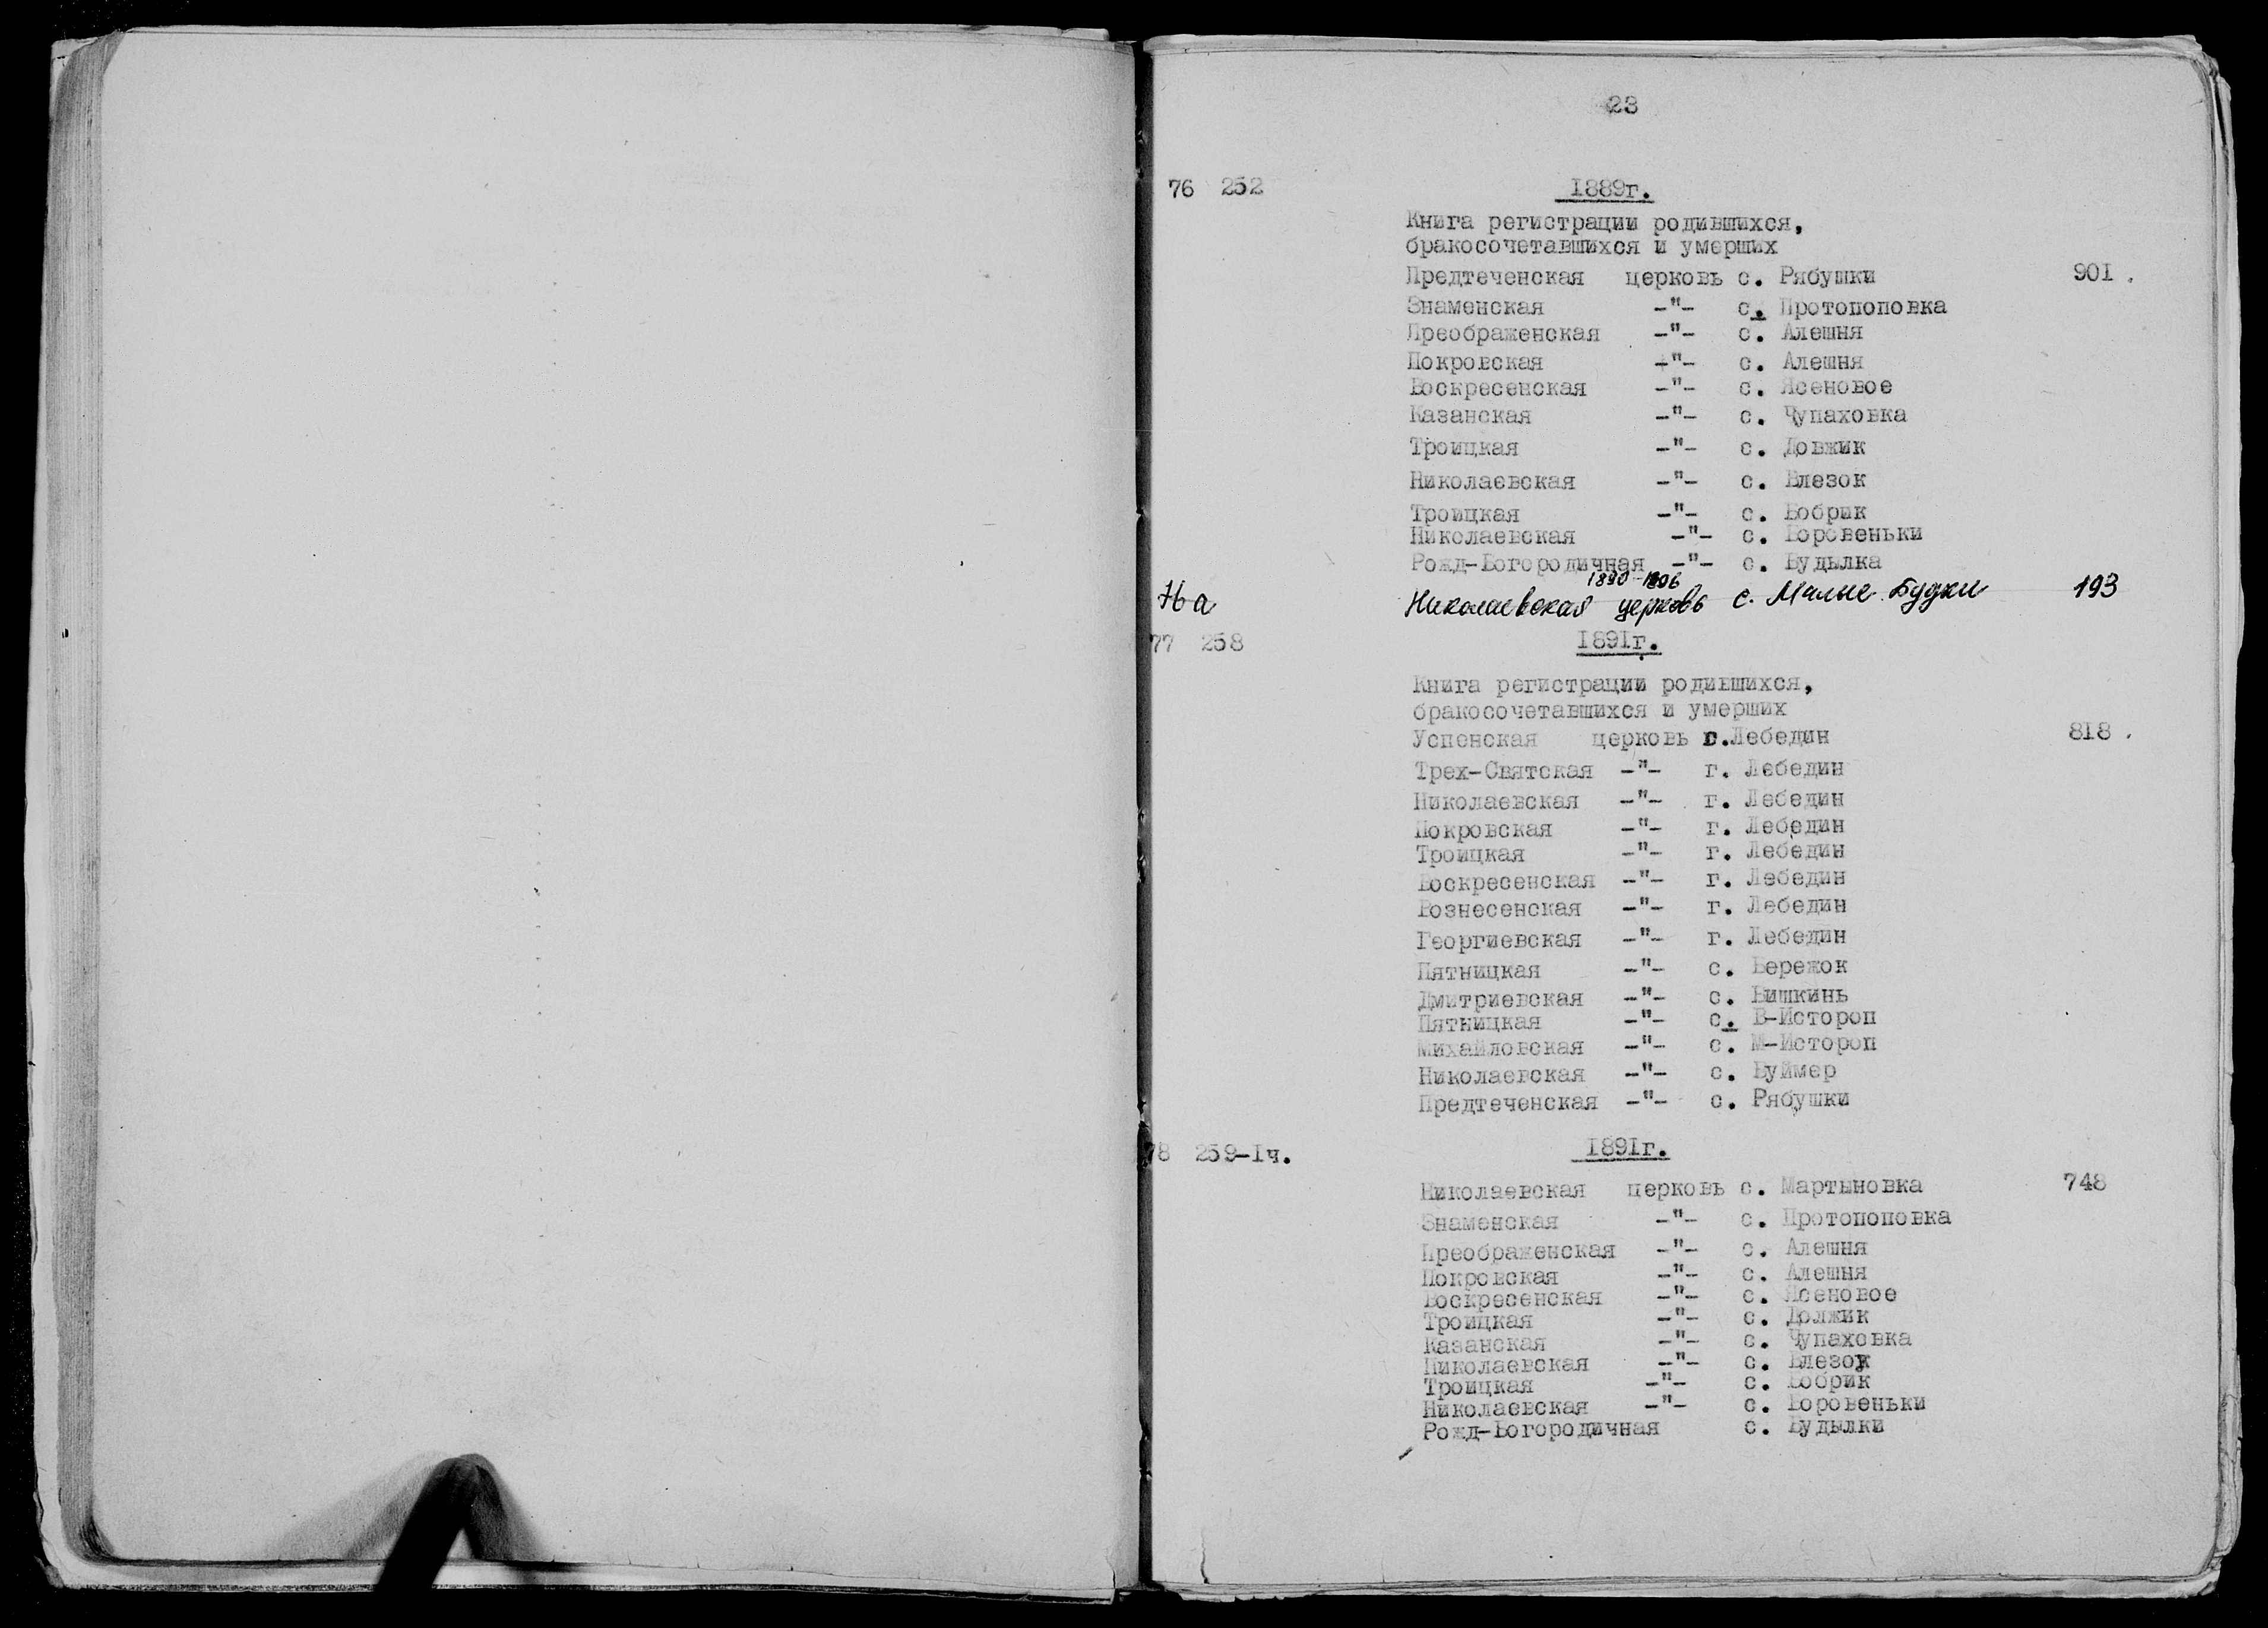 23
76 252 1889г.
Книга регистрации родившихся,
бракосочетавшихся и умерших
Предтеченская церковь с. Рябушки 901.
Знаменская -"- с. Протопоповка
Преображенская -"- с. Алешня
Покровская -"- с. Алешня
Воскресенская -"- с. Ясеновое
Казанская -"- с. Чупаховка
Троицкая -"- с. Довжик
Николаевская -"- с. Влезок
Троицкая -"- с. Бобрик
Николаевская -"- с. Боровеньки
Рожд-Богородичная -"- с. Будылка
1890-1896
76а Николаевская церковь с. Малые Будки 193
77 258 1891г.
Книга регистрации родившихся,
бракосочетавшихся и умерших
Успенская церковь г.Лебедин 818.
Трех-Святская -"- г. Лебедин
Николаевская -"- г. Лебедин
Покровская -"- г. Лебедин
Троицкая -"- г. Лебедин
Воскресенская -"- г. Лебедин
Вознесенская -"- г. Лебедин
Георгиевская -"- г. Лебедин
Пятницкая -"- с. Бережок
Дмитриевская -"- с. Бишкинь
Пятницкая -"- с. В-Истороп
Михайловская -"- с. М-Истороп
Николаевская -"- с. Буймер
Предтеченская -"- с. Рябушки
78 259-1ч. 1891г.
Николаевская церковь с. Мартыновка 748
Знаменская -"- с. Протопоповка
Преображенская -"- с. Алешня
Покровская -"- с. Алешня
Воскресенская -"- с. Ясеновое
Троицкая -"- с. Должик
Казанская -"- с. Чупаховка
Николаевская -"- с. Влезок
Троицкая -"- с. Бобрик
Николаевская -"- с. Боровеньки
Рожд-Богородичная с. Будылки